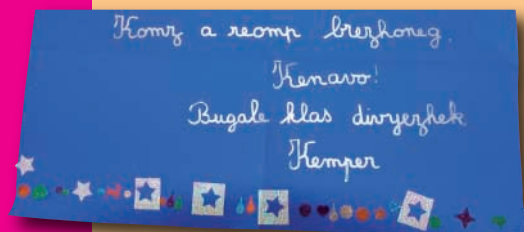 Komz a reomp brezhoneg.
Kenavo!
Bugale klas divyezhek
Kemper